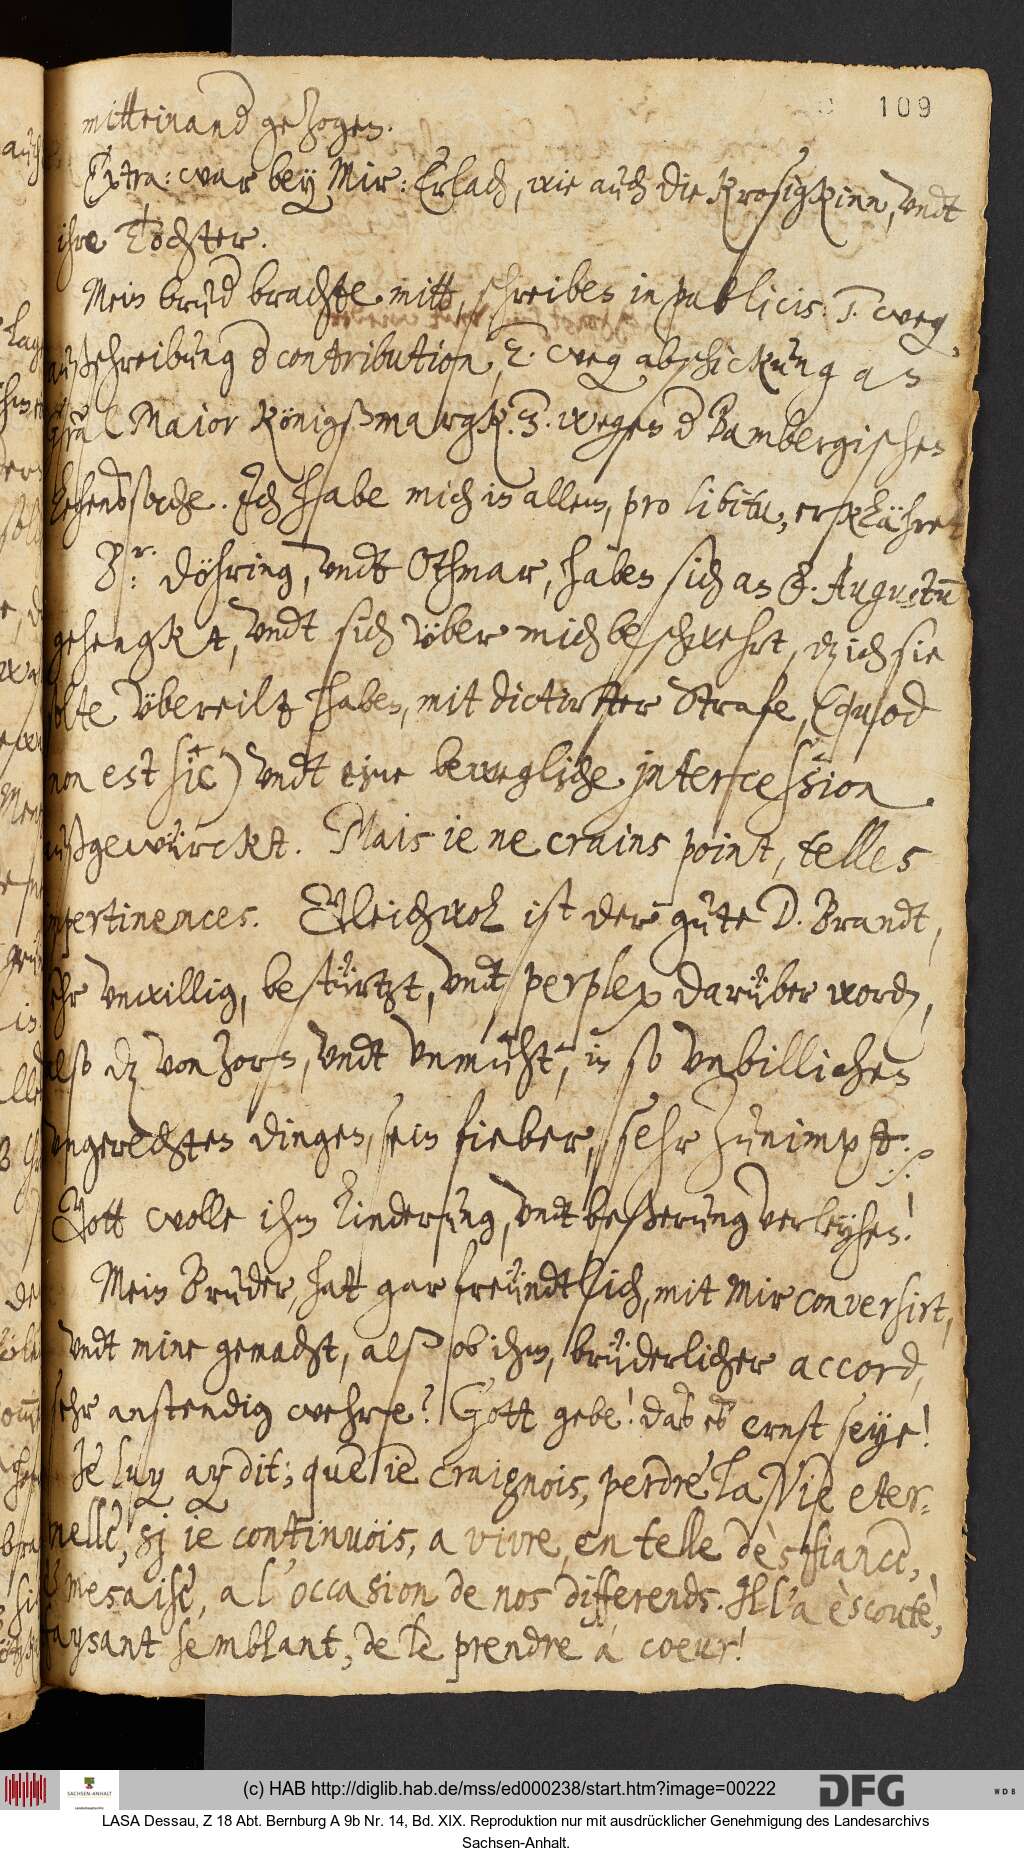 109
mitteinand gezogen.
Extra: war bey Mir: Erlach, wie auch die Krosigkinn, vndt
ihre Töchter.
Mein brud brachte mitt, schreiben in publicis: 1. weg
außschreibung d contribution, 2. weg abschickung an
G Major Königßmargk. 3. wegen d Bambergischen
Lehenßsache. Ich habe mich in allem, pro libitu, erklähret
Döhring, vndt Othmar, haben sich an F. Augustū
gehengkt, vndt sich vber mich beschwehrt, dz ich sie
solte vbereilt haben, mit dictirter Strafe, (quod
non est sic) vndt eine bewegliche intercession
außgewürckt. Mais ie ne crains point, telles
impertinences. Gleichwol ist der gute D. Brandt,
sehr vnwillig, bestürtzt, vndt perplex darüber word,
also dz von zorn, vndt vnmuht, in so vnbillichen
vngerechten dingen, sein fieber, sehr zunimpt.
Gott wolle ihm linderung, vndt beßerung verleyhen!
Mein Bruder, hat gar freündtlich, mit Mir conversirt,
vndt mine gemacht, alß ob ihm, brüderlicher accord,
sehr anstendig wehre? Gott gebe! daß eß ernst seye!
Je luy ay dit; que ie craignois, perdre la Vie eter-
nelle, si ie continuois, a vivre, en telle dèsfiance,
& mesaise, a l'occasion de nos differends. Il l'a èscoutè,
faysant semblant, de le prendre a coeur!
(c) HAB http://diglib.hab.de/mss/ed000238/start.htm?image=00222
SACHSEN-ANHALT
DFG
WDB
LASA Dessau, Z 18 Abt. Bernburg A 9b Nr. 14, Bd. XIX. Reproduktion nur mit ausdrücklicher Genehmigung des Landesarchivs
Sachsen-Anhalt.